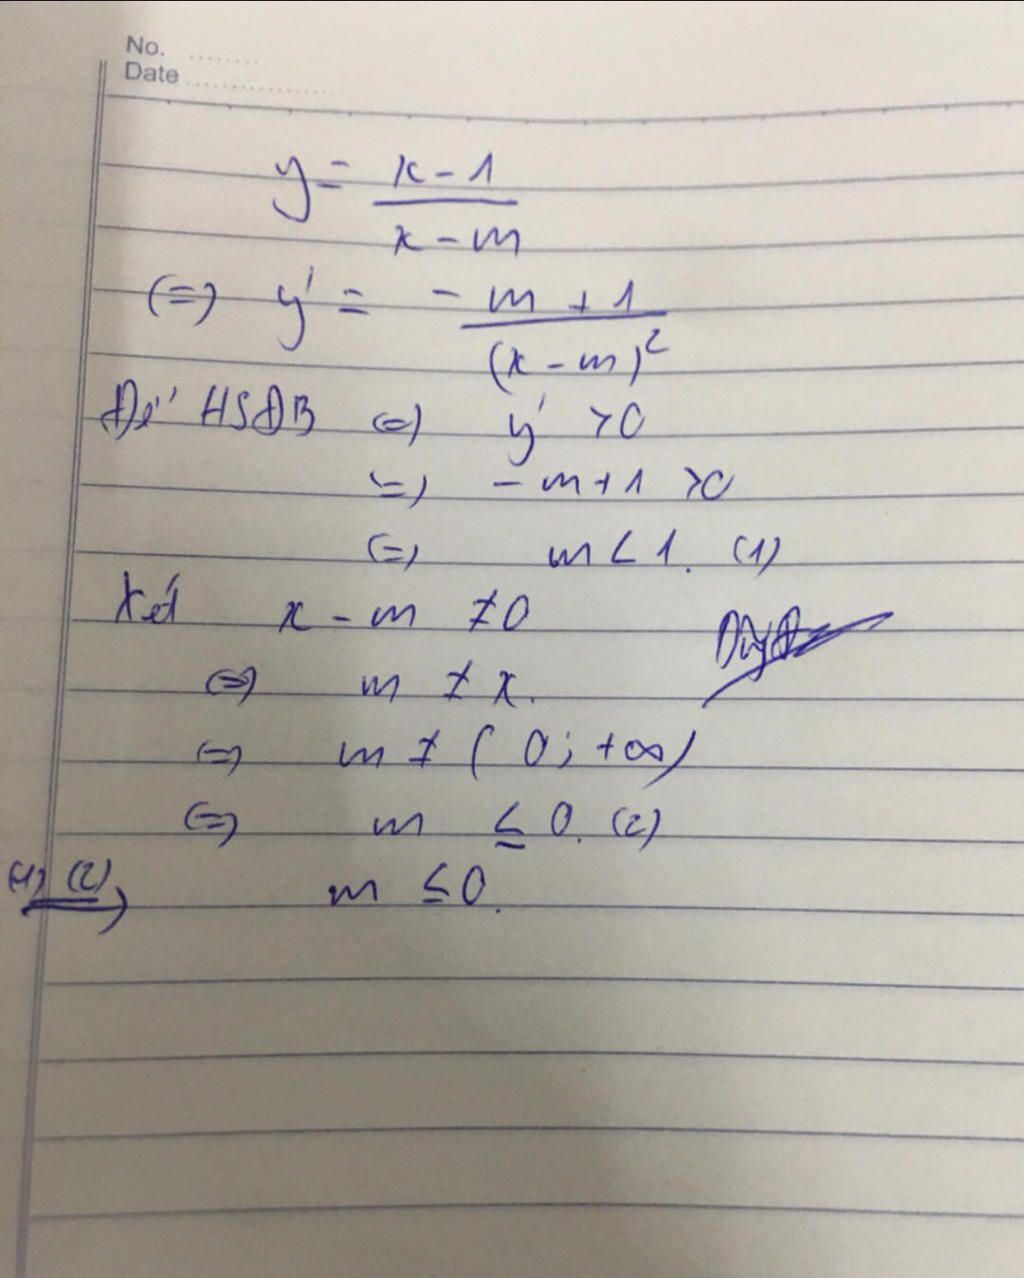 No. ........
Date ................
y = x - 1 / x - m
(=) y' = - m + 1 / (x - m)²
Để HSĐB (=) y' > 0
(=) - m + 1 > 0
(=) m < 1. (1)
Xét x - m ≠ 0
(=) m ≠ x.
(=) m ≠ (0; +∞)
(=) m ≤ 0. (2)
(1), (2) m ≤ 0.